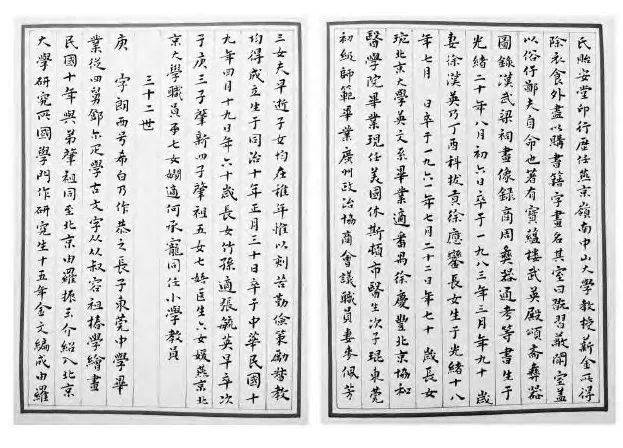 三女夫早逝子女均在稚年惟以刻苦勤儉策勵督教
均得成立生于同治十年正月三十日卒于中華民國十
九年四月十九日年六十歲長女竹孫適張毓英早卒次
子庚三子肇新四子肇祖五女七医生六女媛燕京北
京大學職員七女嫻適何承寵同任小學教員
三十二世
庚 字朗西号希白乃作恭之長子東莞中學畢
業從四舅鄧尔疋學古文字从从叔容祖椿學繪畫
民國十年與弟肇祖同至北京由羅振玉介紹入北京
大學研究所國學門作研究生十五年金文編成由羅
氏貽安堂印行歷任燕京嶺南中山大學教授薪金所得
除衣食外盡以購書籍字畫名其室曰習室蓋
以俗行鄙夫自命也著有寶蘊樓武英殿頌齋彝器
圖錄漢武梁祠畫像錄商周彝器通考等書生于
光緒二十年八月初六日卒于一九八三年三月九十 歲
妻徐漢英乃丁酉科拔貢徐應鑾長女生于光緒十八
年七月 日卒于一九六一年七月二十二日年七十 歲長女
琬北京大學英文系畢業適番禺徐慶豐北京協和
醫學院畢業現任美國休斯頓市醫生次子琨東莞
初級師範畢業廣州政治協商會議職員妻麥佩芳